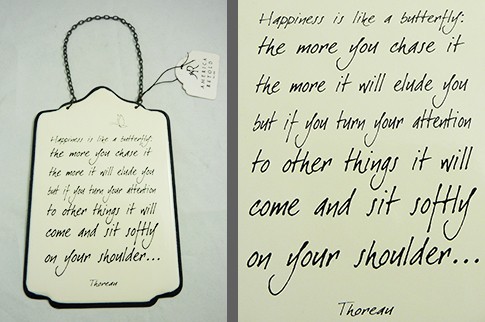 AMERICA
RETOLD
Happiness is like a butterfly:
the more you chase it
the more it will elude you
but if you turn your attention
to other things it will
come and sit softly
on your shoulder...
Thoreau
Happiness is like a butterfly:
the more you chase it
the more it will elude you
but if you turn your attention
to other things it will
come and sit softly
on your shoulder...
Thoreau